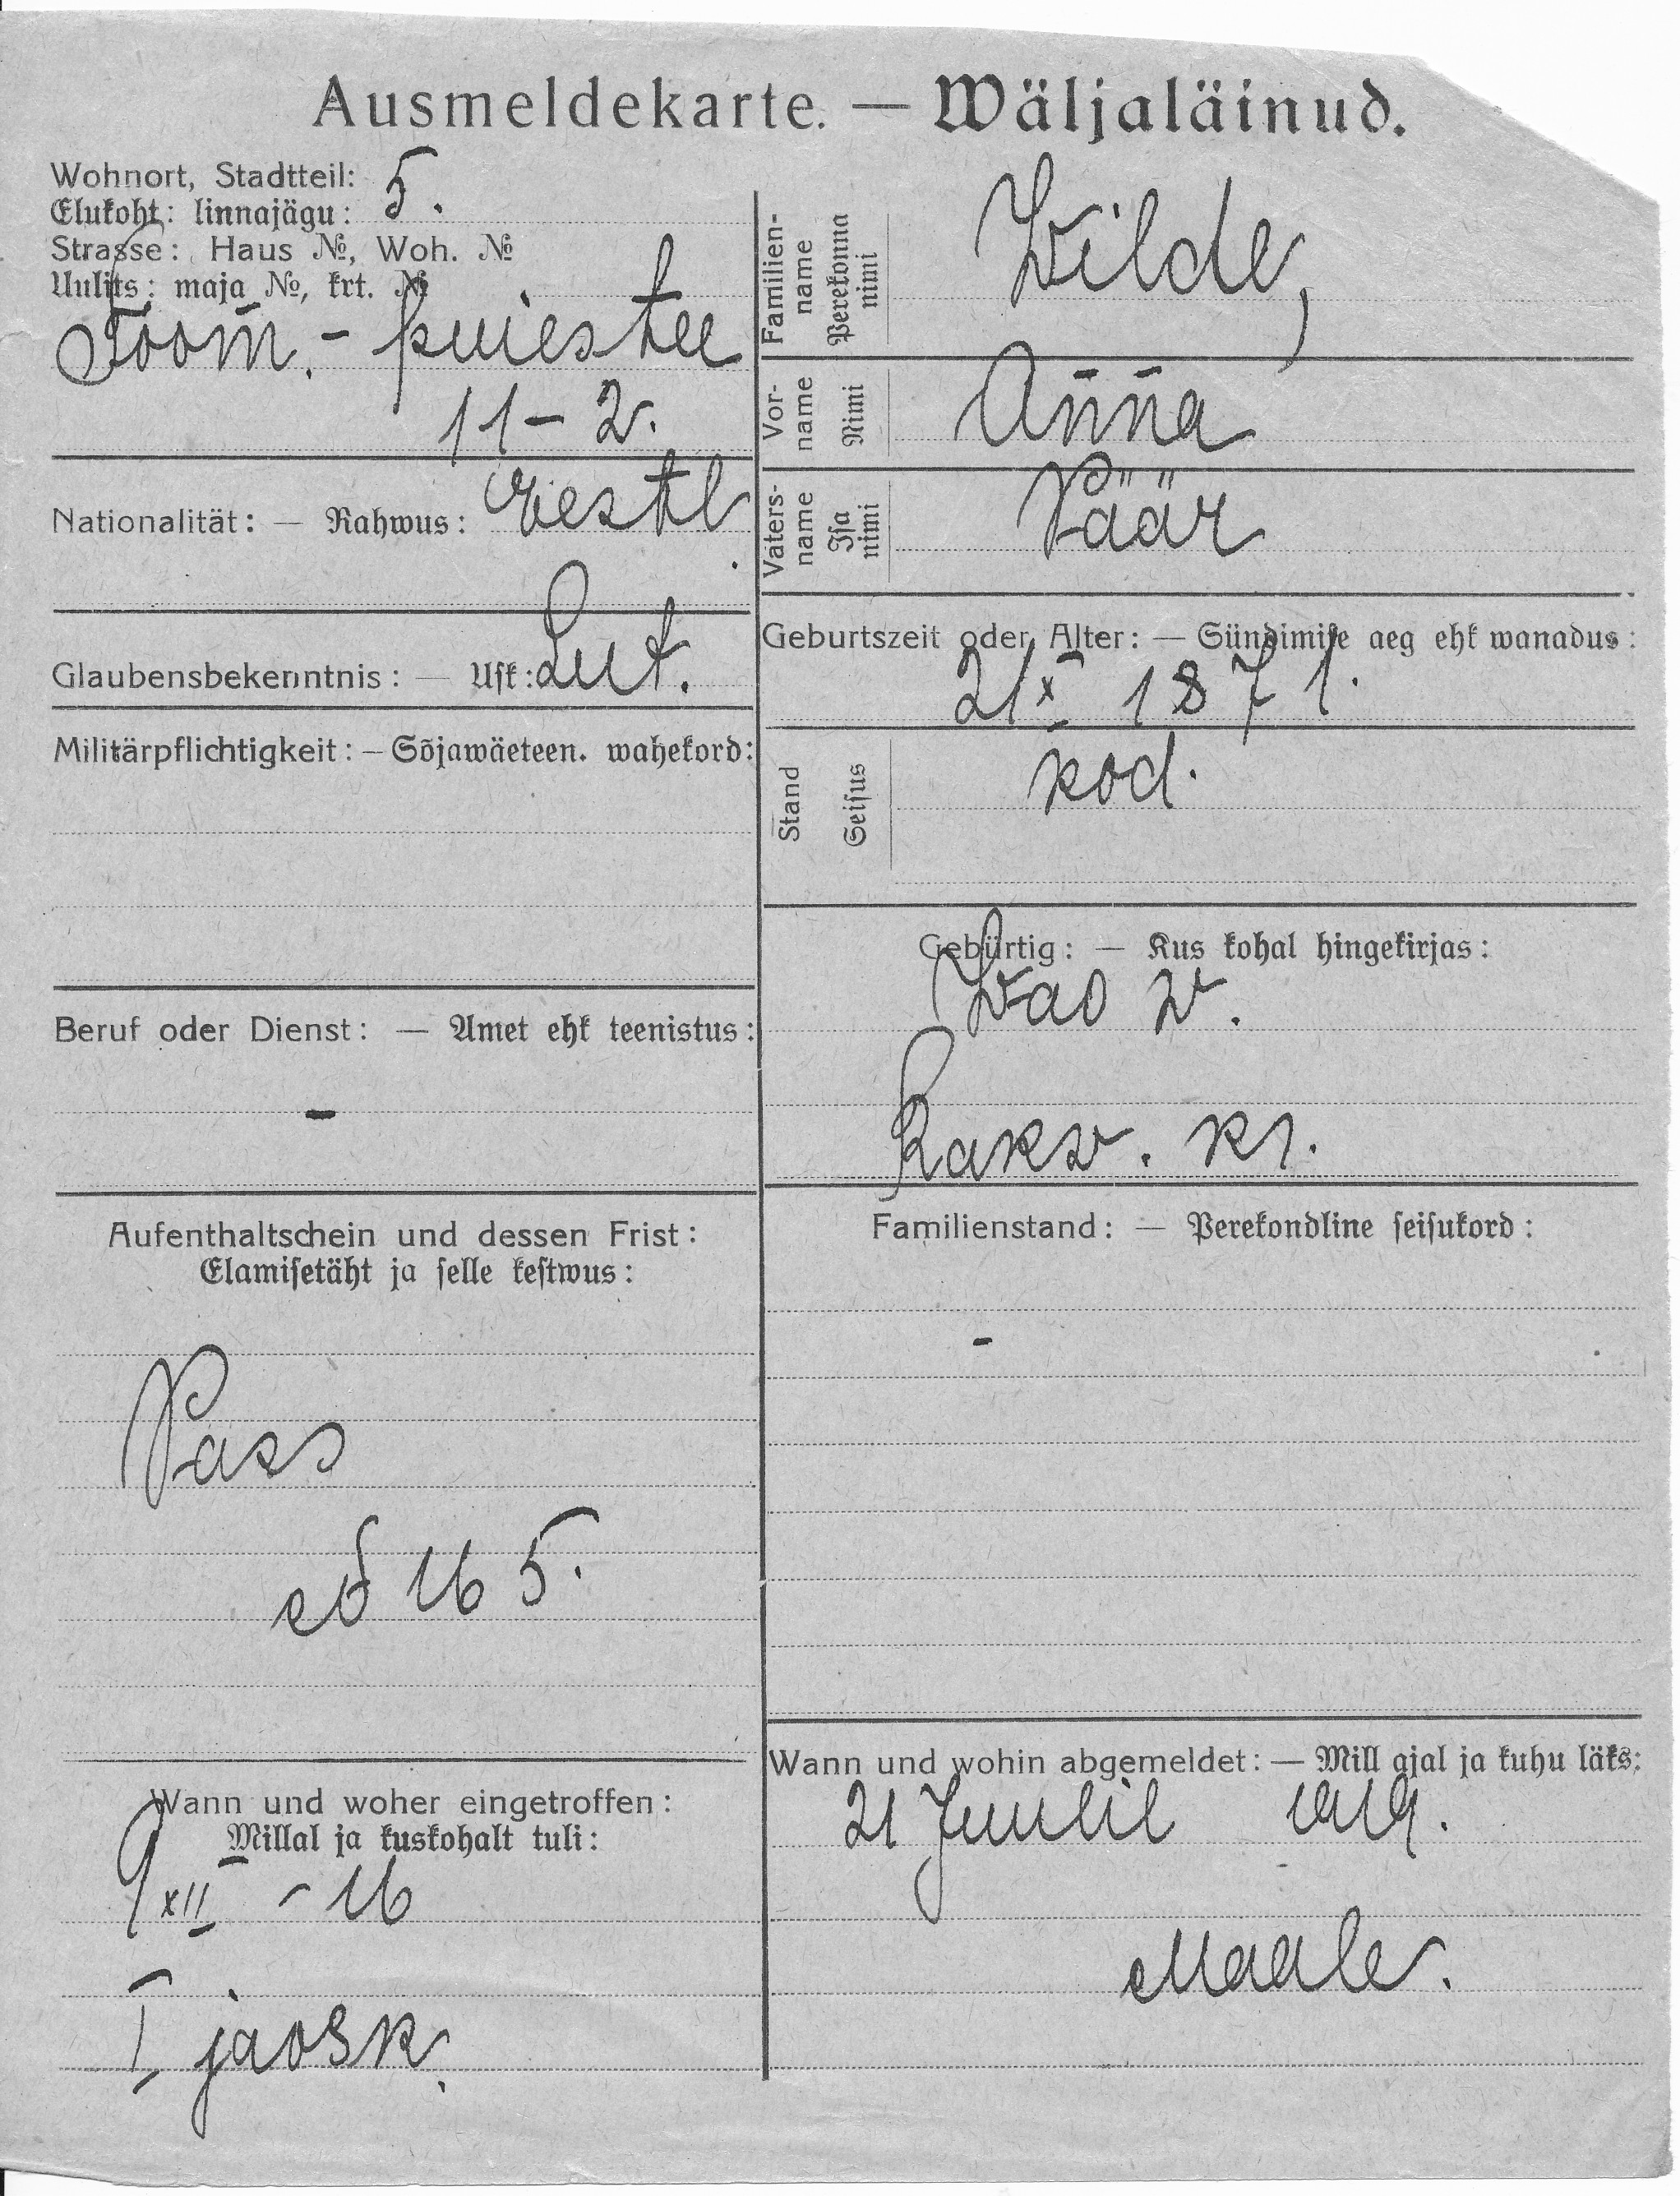 Ausmeldekarte. — Wäljaläinud.
Wohnort, Stadtteil:
Elukoht: linnajägu: 5.
Strasse: Haus №, Woh. №
Uulits: maja №, krt. №
Toom.- puiestee
11 - 2.
Nationalität: — Rahwus: Eestl.
Glaubensbekenntnis: — Usk: Lut.
Militärpflichtigkeit: — Sõjawäeteen. wahekord:
Beruf oder Dienst: — Amet ehk teenistus:
-
Aufenthaltschein und dessen Frist:
Elamisetäht ja selle kestwus:
Pass
16 5.
Wann und woher eingetroffen:
Millal ja kuskohalt tuli:
9 XII - 16
I jaosk.
Familien-name Perekonna nimi Wilde,
Vor-name Nimi Anna
Vaters-name Isa nimi Päär
Geburtszeit oder Alter: — Sündimise aeg ehk wanadus:
21 X 1871.
Stand Seisus kod.
Gebürtig: — Kus kohal hingekirjas:
Wao w.
Rakw. kr.
Familienstand: — Perekondline seisukord:
-
Wann und wohin abgemeldet: — Mill ajal ja kuhu läks:
21 Juulil 1919.
Maale.